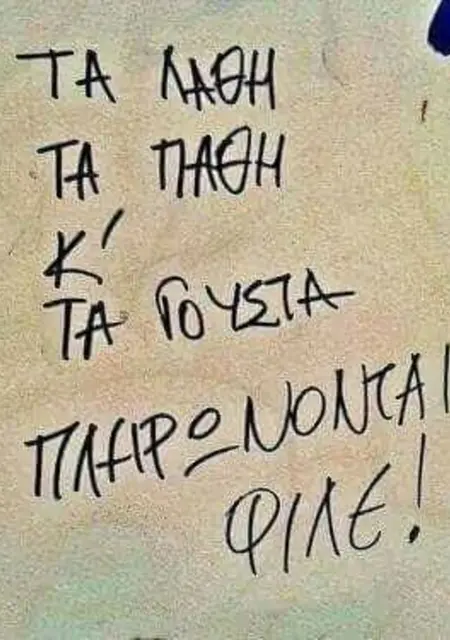 ΤΑ ΛΑΘΗ
ΤΑ ΠΑΘΗ
Κ'
ΤΑ ΓΟΥΣΤΑ
ΠΛΗΡΩΝΟΝΤΑΙ
ΦΙΛΕ!